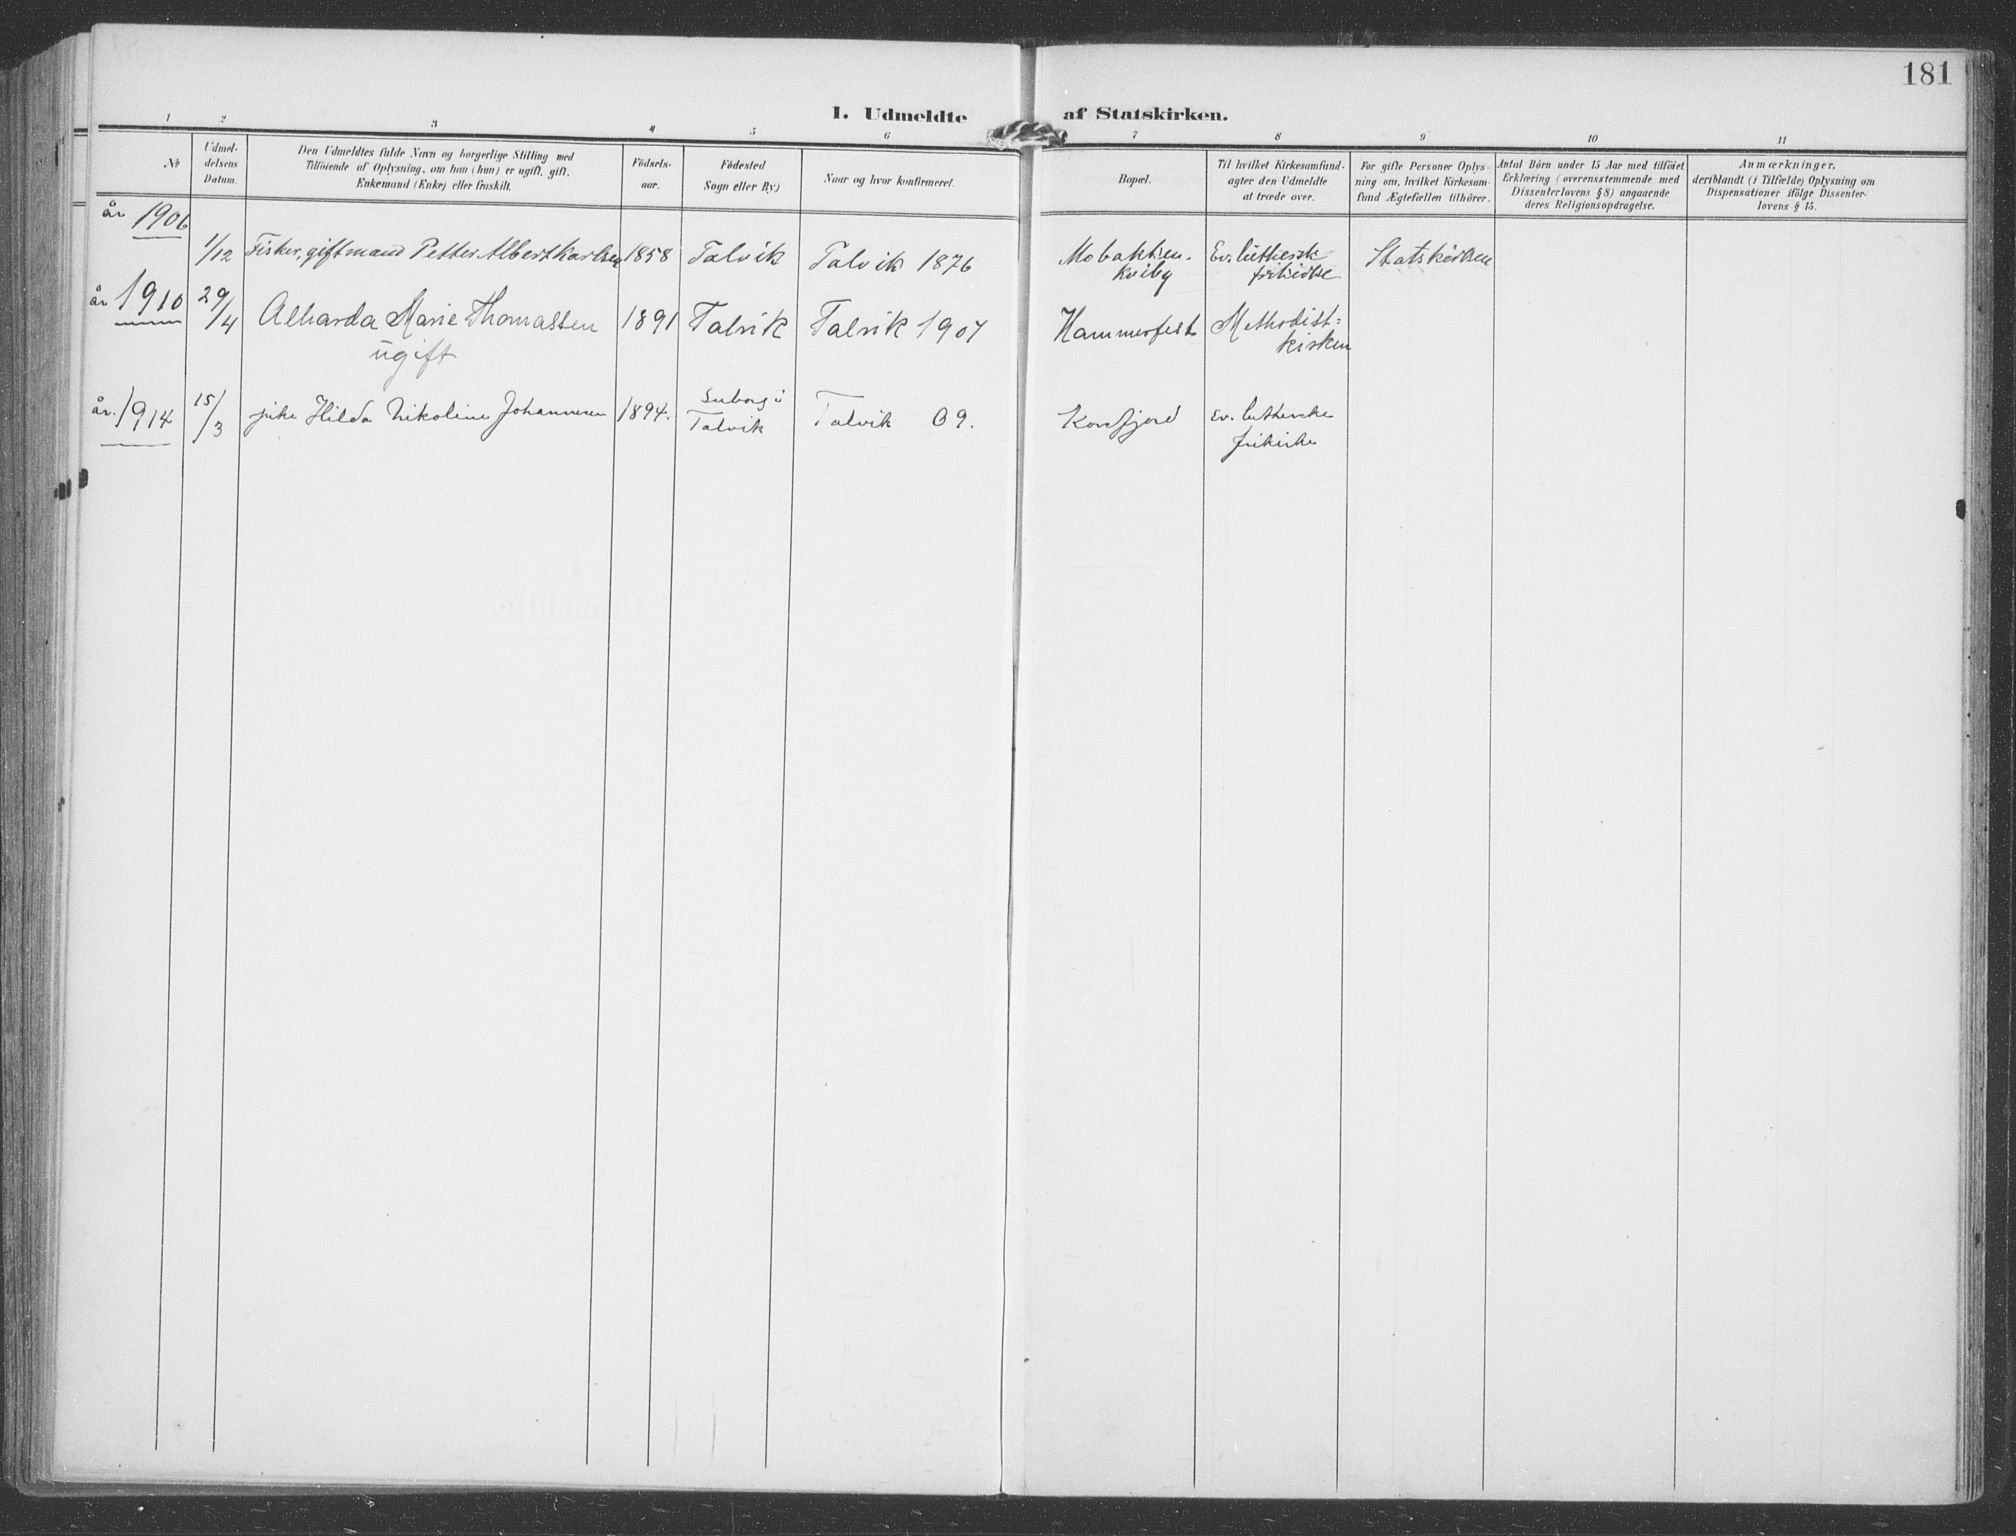 181
I. Udmeldte af Statskirken.
1 2 3 4 5 6 7 8 9 10 11
№
Udmel-
delsens
Datum.
Den Udmeldtes fulde Navn og borgerlige Stilling med
Tilföiende af Oplysning, om han (hun) er ugift, gift,
Enkemand (Enke) eller fraskilt.
Födsels-
aar.
Födested
Sogn eller By.)
Naar og hvor konfirmeret.
Bopæl.
Til hvilket Kirkesamfund-
agter den Udmeldte
at træde over.
For gifte Personer Oplys-
ning om, hvilket Kirkesam-
fund Ægtefællen tilhörer.
Antal Börn under 15 Aar med tilföiet
Erklæring (overensstemmende med
Dissenterlovens § 8) angaaende
deres Religionsopdragelse.
Anmærkninger,
deriblandt (i Tilfælde) Oplysning om
Dispensationer ifölge Dissenter-
lovens § 15.
år 1906
1/12 Fisker, giftmand Petter Albert Karlsen 1858 Talvik Talvik 1876 Mobakken. Ev. luthersk Statskirken
Kviby frikirke
år 1910 29/4 Alharda Marie Thomassen 1891 Talvik Talvik 1907 Hammerfest Methodist=
ugift kirken
år. 1914 15/3 pike Hilda Nikoline Johannesen 1894. i
Talvik Talvik 09. Korsfjord Ev. lutherske
frikirke